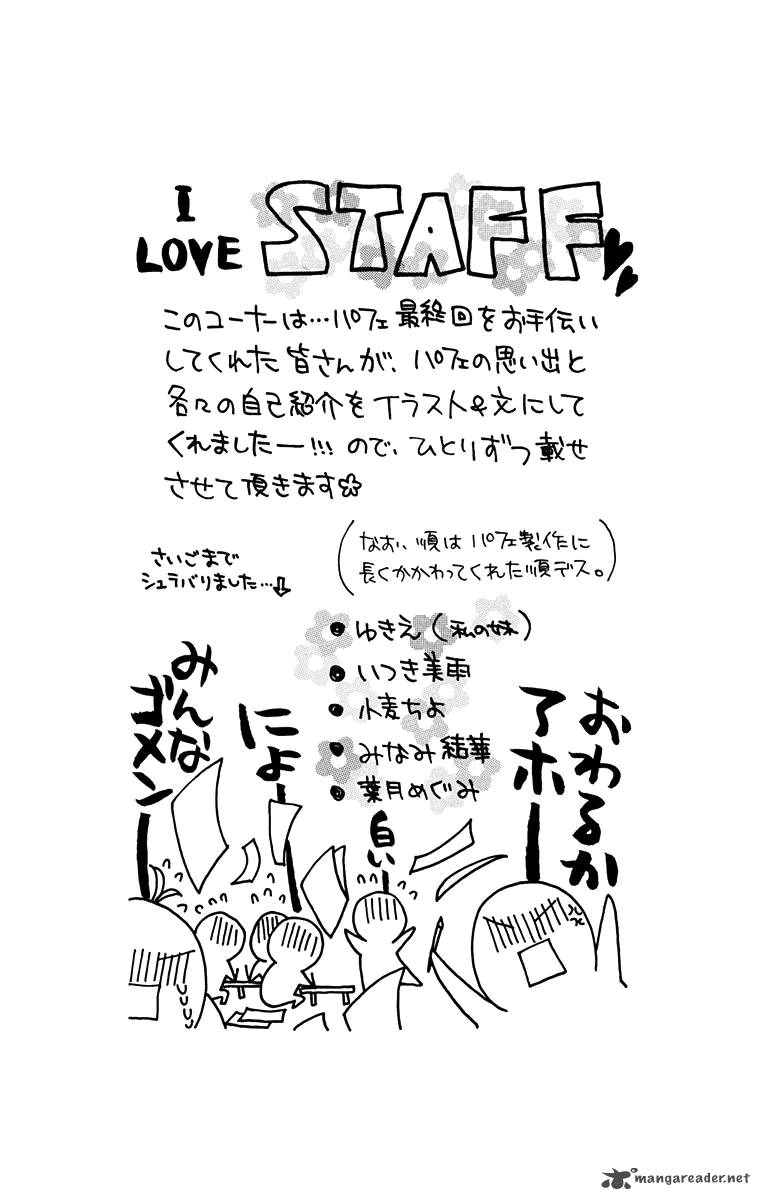 I
LOVE STAFF
このコーナーは…パフェ最終回をお手伝い
してくれた皆さんが、パフェの思い出と
各々の自己紹介をイラスト&文にして
くれましたー!!!ので、ひとりずつ載せ
させて頂きます☆
(なお、順はパフェ製作に
長くかかわってくれた順デス。)
さいごまで
シュラバりました…⇩
●ゆきえ(私の妹)
●いつき美雨
●小麦ちよ
●みなみ結華
●葉月めぐみ
おわるか
アホー
白いー
にょー
みんな
ゴメンー
mangareader.net